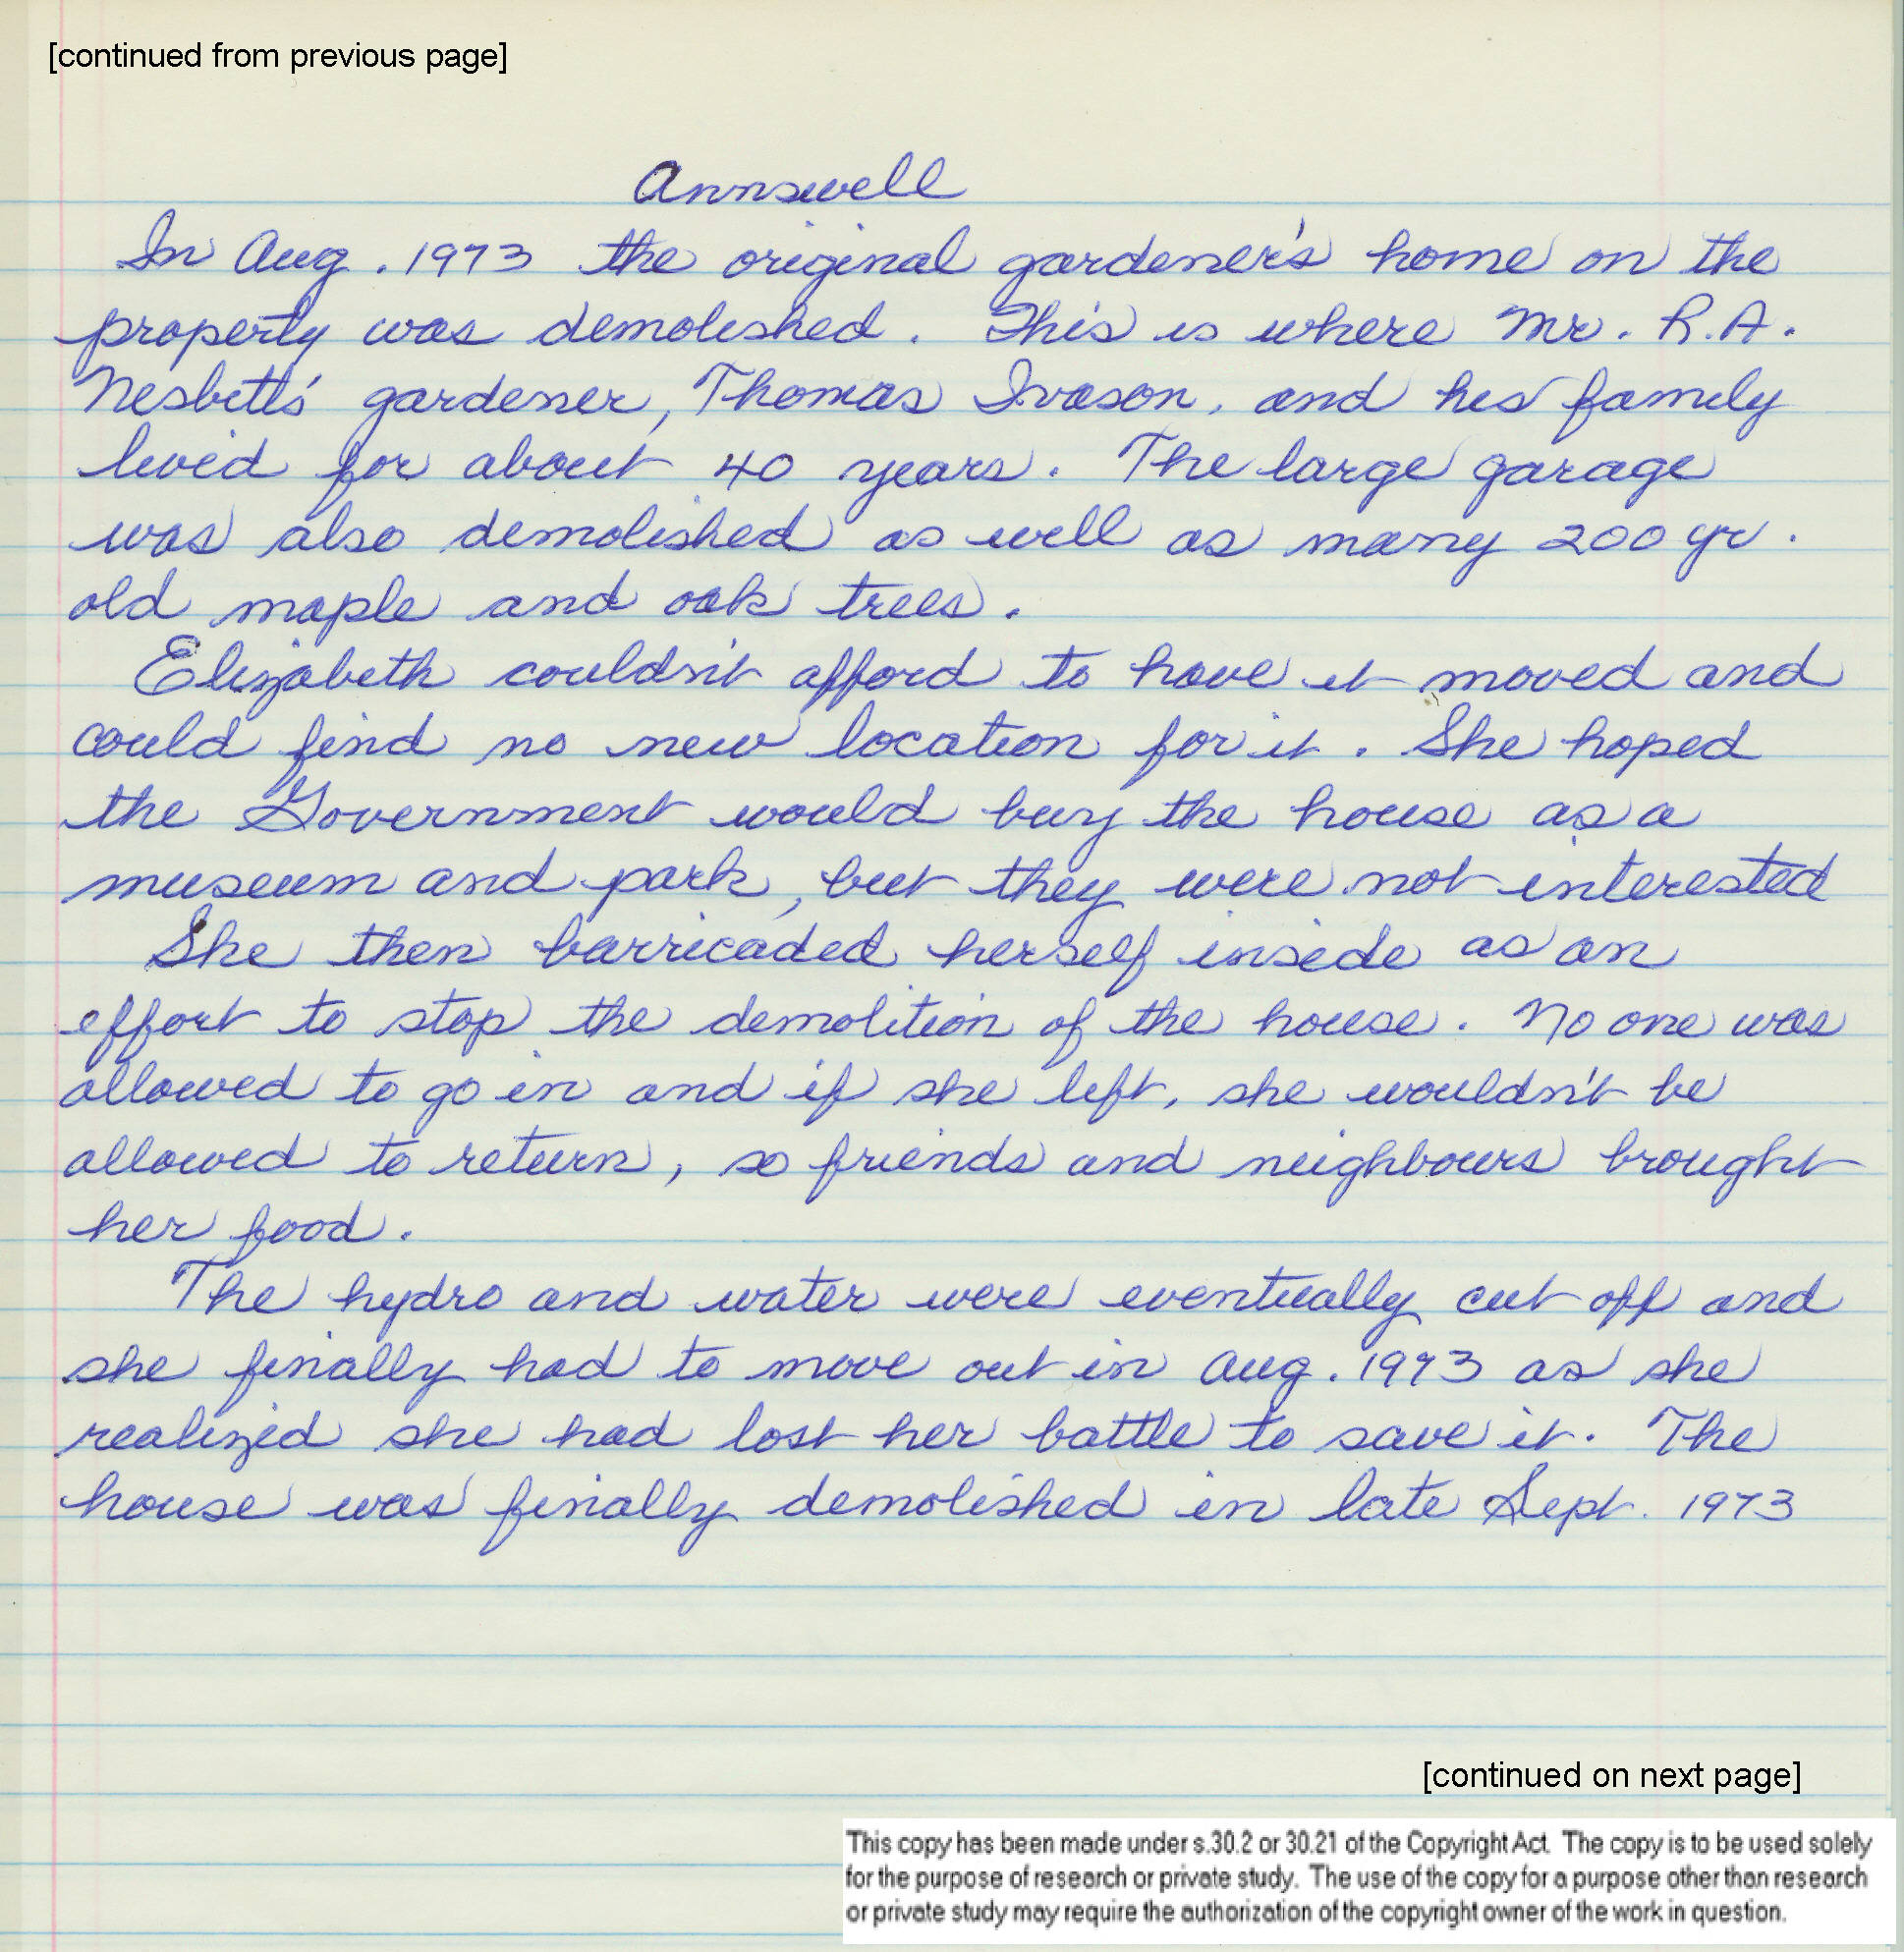 [continued from previous page]
Annswell
In Aug. 1973 the original gardener's home on the
property was demolished. This is where Mr. R.A.
Nesbett's gardener, Thomas Ivason, and his family
lived for about 40 years. The large garage
was also demolished as well as many 200 yr.
old maple and oak trees.
Elizabeth couldn't afford to have it moved and
could find no new location for it. She hoped
the Government would buy the house as a
museum and park, but they were not interested
She then barricaded herself inside as an
effort to stop the demolition of the house. No one was
allowed to go in and if she left, she wouldn't be
allowed to return, so friends and neighbours brought
her food.
The hydro and water were eventually cut off and
she finally had to move out in Aug. 1973 as she
realized she had lost her battle to save it. The
house was finally demolished in late Sept. 1973
[continued on next page]
This copy has been made under s.30.2 or 30.21 of the Copyright Act. The copy is to be used solely
for the purpose of research or private study. The use of the copy for a purpose other than research
or private study may require the authorization of the copyright owner of the work in question.